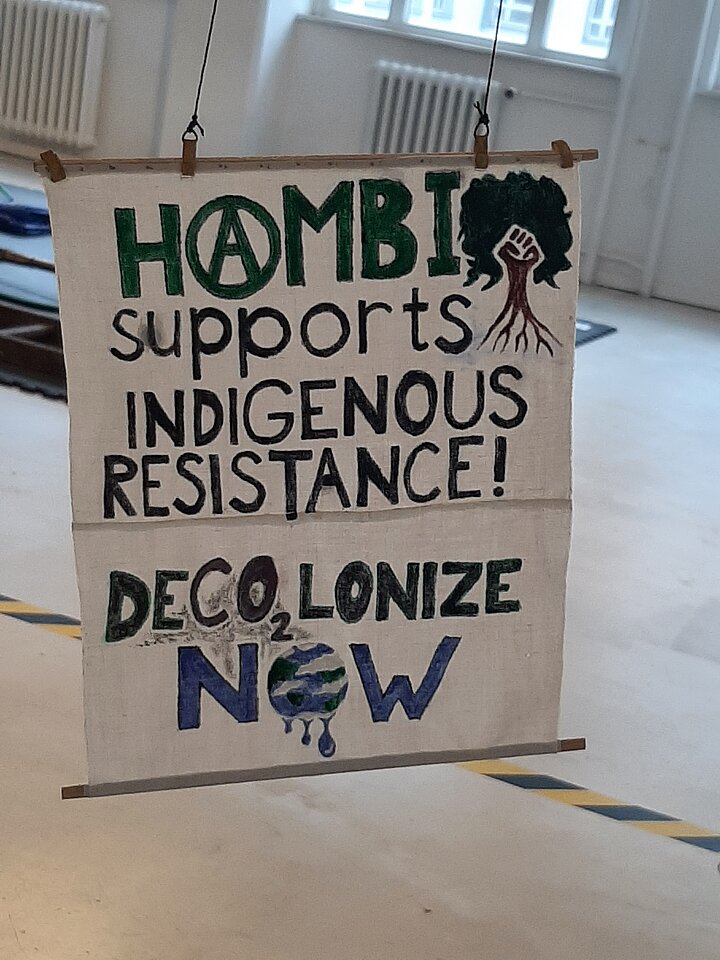 HAMBI
supports
INDIGENOUS
RESISTANCE!
DECO₂LONIZE
NOW